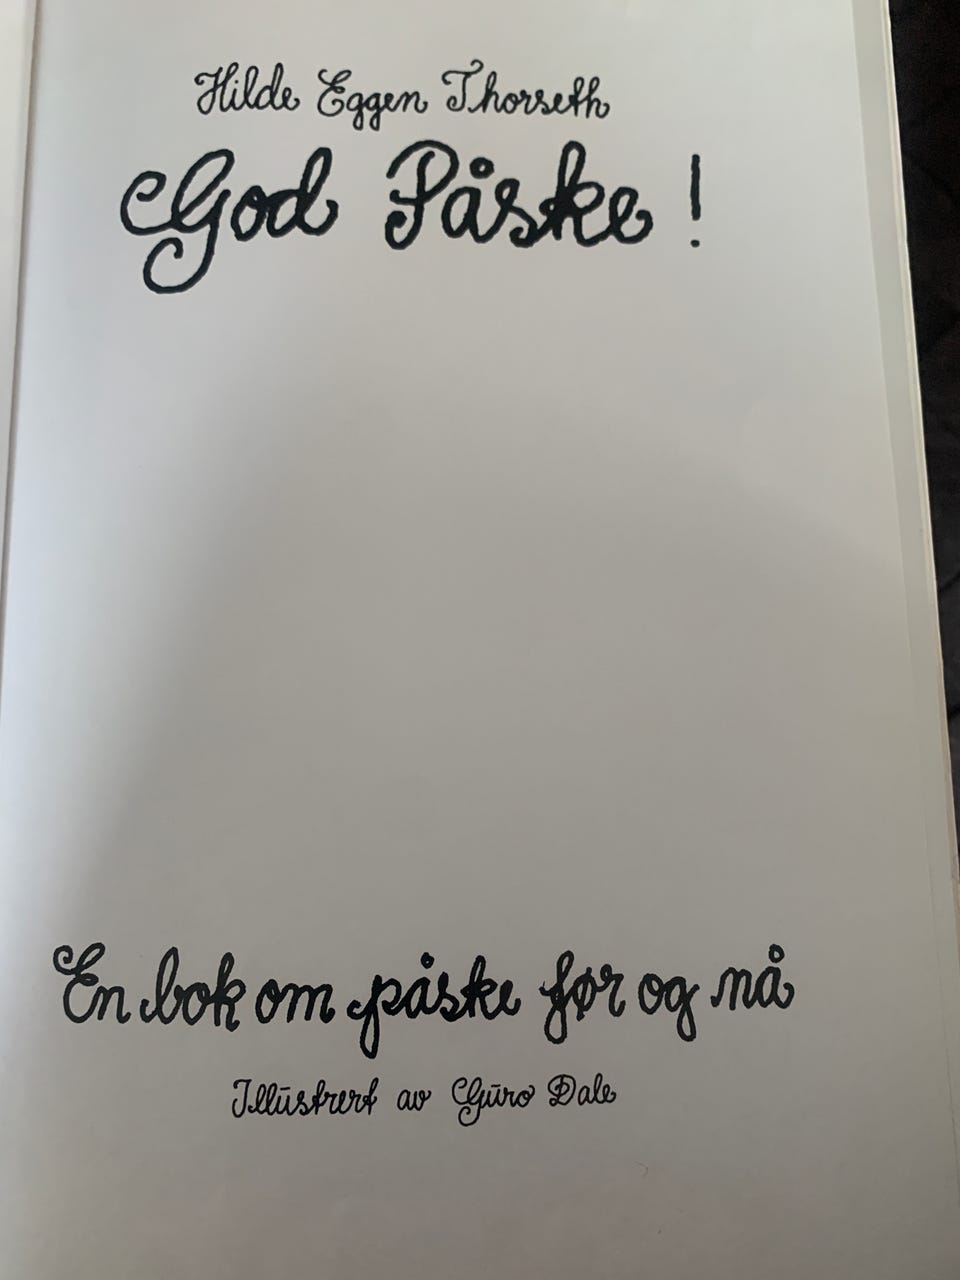 Hilde Eggen Thorseth
God Påske!
En bok om påske før og nå
Illustrert av Guro Dale